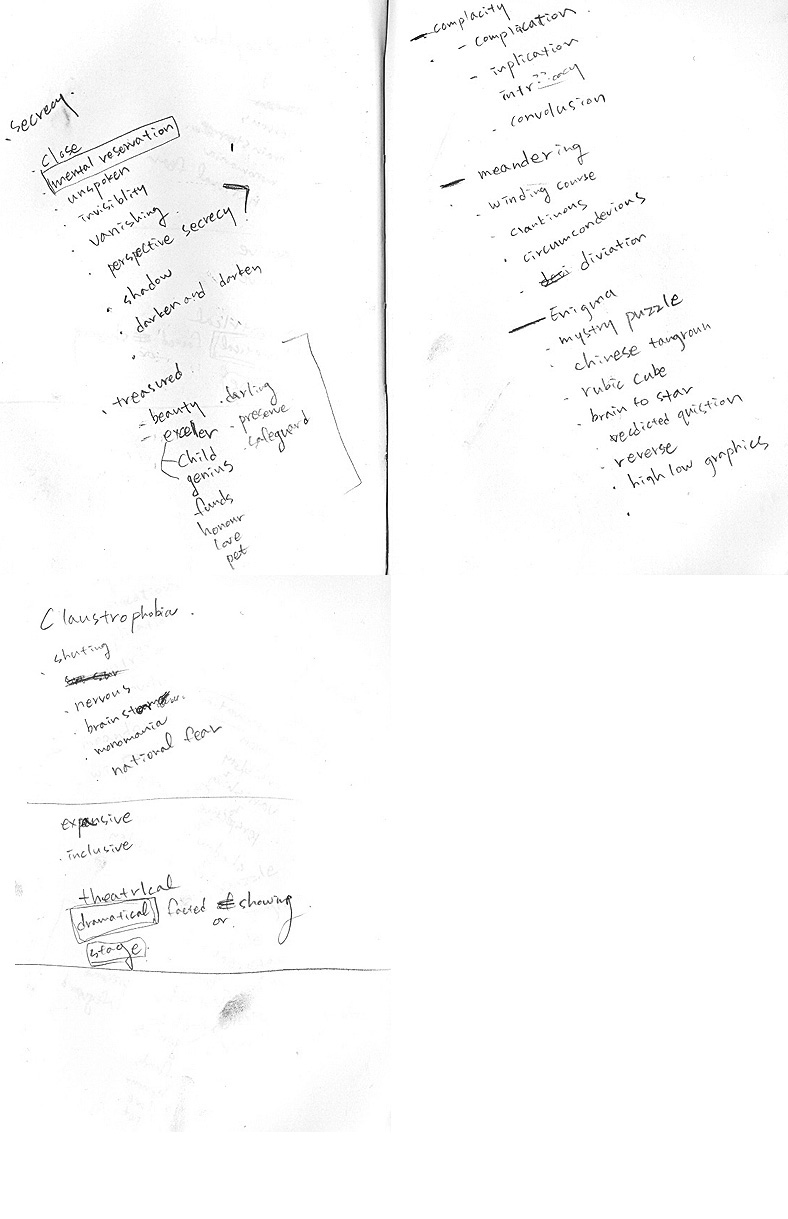 . secrecy.
. close
mental reservation
. unspoken
. invisiblity
. vanishing.
. perspective secrecy
. shadow
. darken and darken
.
. treasured.
- beauty . darling
- exceller . preserve
child . safeguard
genius
funds
honour
love
pet
— complacity
- complication
- inplication
intricacy
- convolusion
— meandering
. winding course
. circumconderious
. diviation
— Enigma
. mystry puzzle
. chinese tangroun
. rubic cube
. brain to star
quistion
. reverse
. high low graphics
.
Claustrophobia.
. shuting
. nervous
. brain
. monomania
. national fear
expansive
. inclusive
theatrical
dramatical facted showing.
or.
stage.